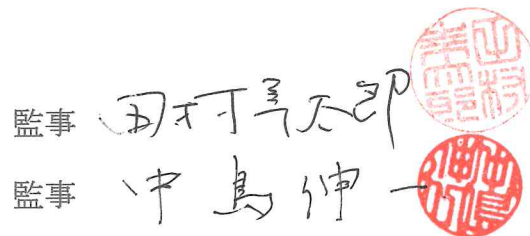 監事 田村 太郎
監事 中島伸一